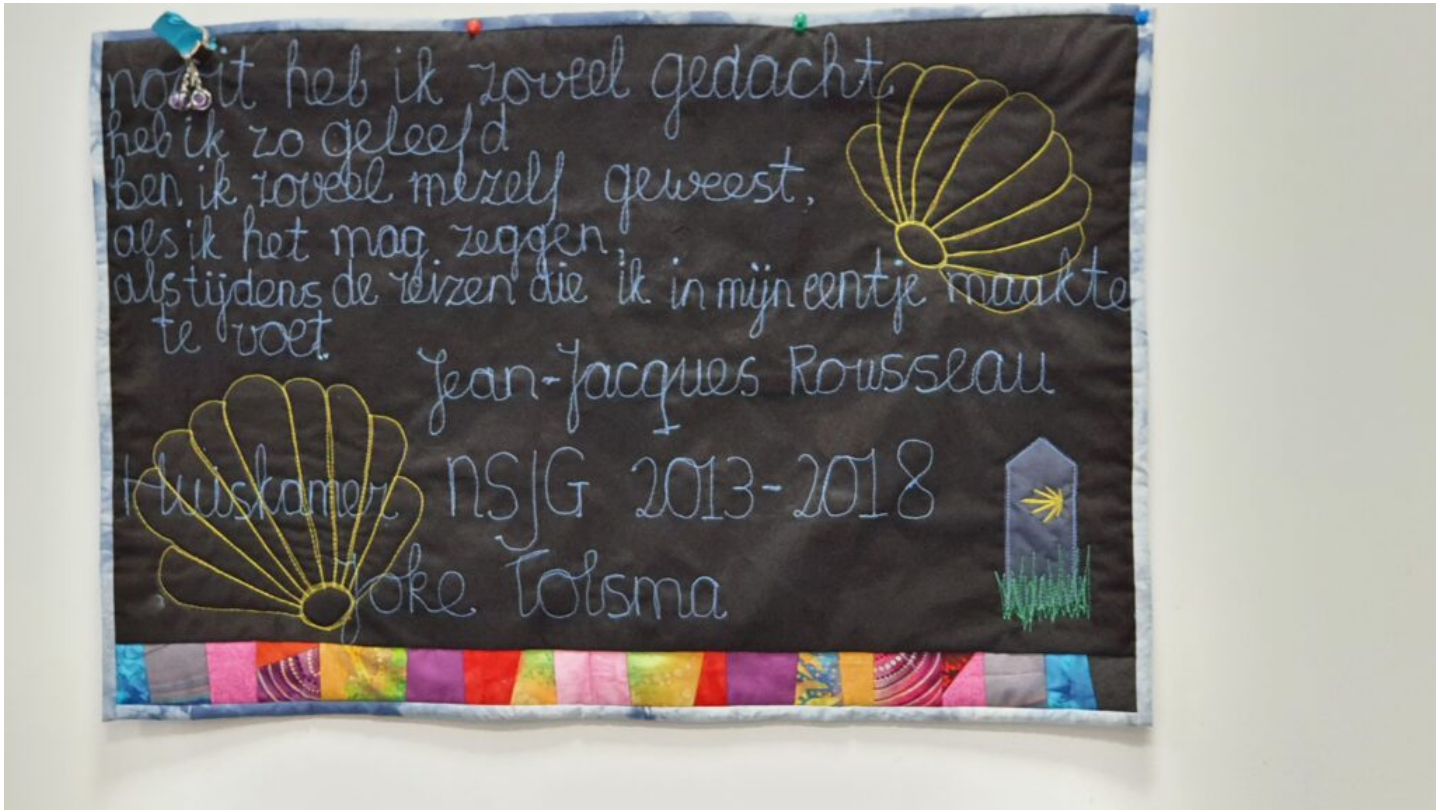 nooit heb ik zoveel gedacht
heb ik zo geleefd
ben ik zoveel mezelf geweest,
als ik het mag zeggen,
als tijdens de reizen die ik in mijn eentje maakte
te voet.
Jean-Jacques Rousseau
Huiskamer NSJG 2013-2018
Joke Tolsma